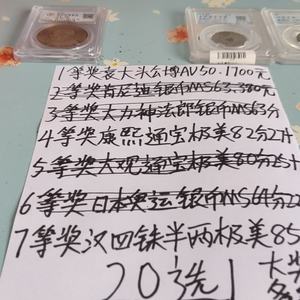 1等奖袁大头公博AU50.1700元
2等奖肯尼迪银币MS63.380元
3等奖大力神法郎银币MS63分
4等奖康熙通宝极美82分2升
5等奖大观通宝极美80分25
6等奖日本奥运银币MS64分22
7等奖汉四铢半两极美85
20选1
大奖